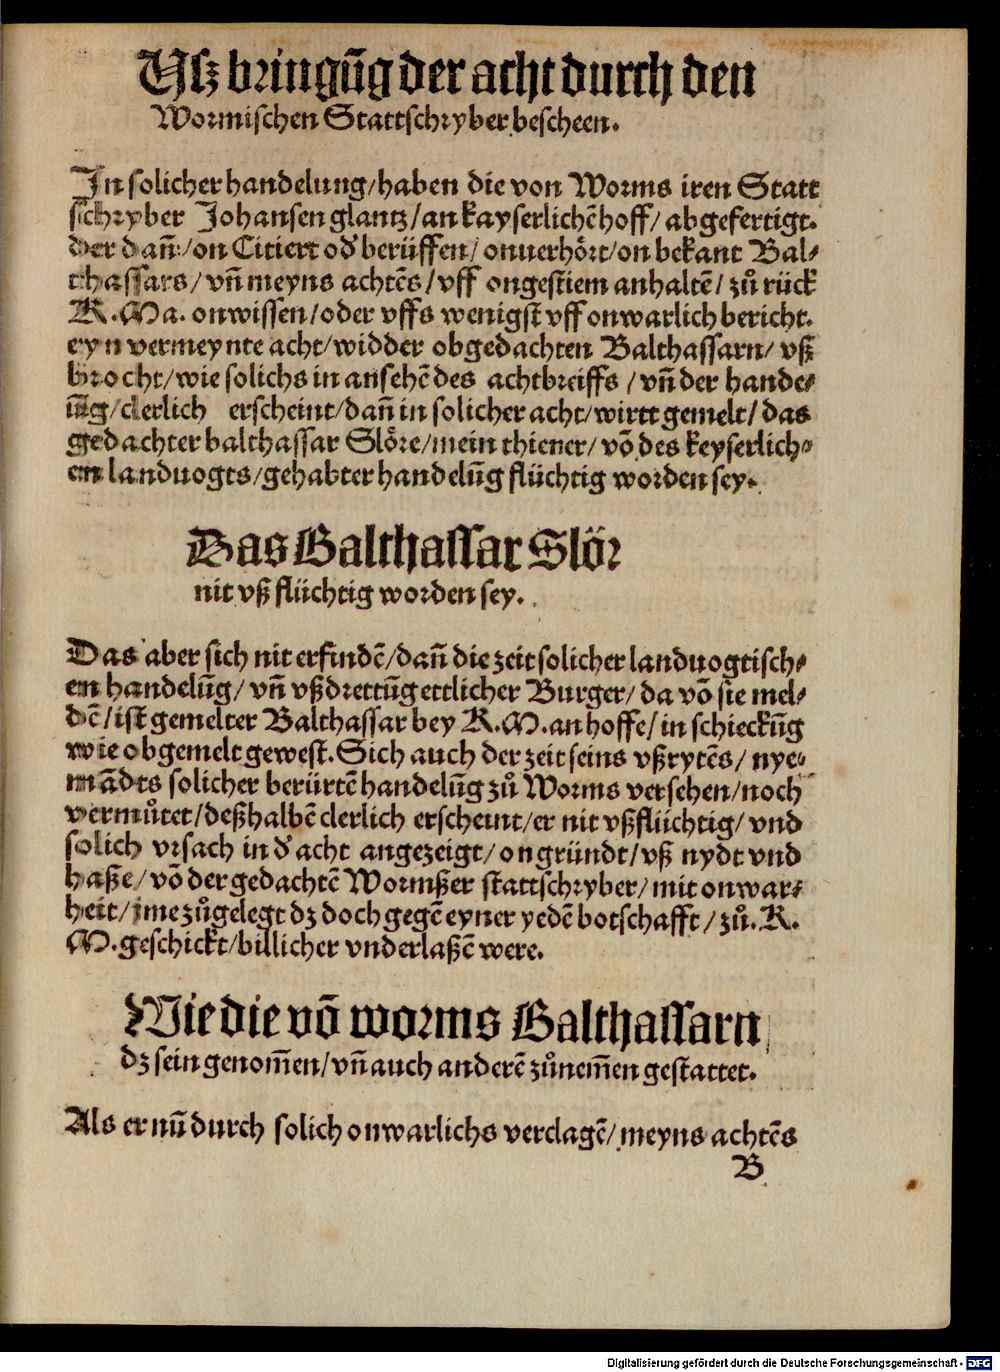 Vſz bringūg der acht durch den
Wormiſchen Stattſchryber beſcheen.
In ſolicher handelung/haben die von Worms iren Statt
ſchryber Johanſen glantz/an kayſerlichē hoff/ abgefertigt.
der dañ/on Citiert oď berüffen/ onuerhört/on bekant Bal-
thaſſars/ vñ meyns achtēs/vff ongeſtiem anhaltē/ zů rück
K.Ma. onwiſſen/oder vffs wenigſt vff onwarlich bericht.
eyn vermeynte acht/widder obgedachten Balthaſſarn/ vß
brocht/wie ſolichs in anſehē des achtbreiffs /vñ der hande-
lūg/clerlich erſcheint/dañ in ſolicher acht/wirtt gemelt/das
gedachter balthaſſar Slöre/mein thiener/ vō des keyſerlich-
en landuogts/gehabter handelūg flüchtig worden ſey.
Das Balthaſſar Slör
nit vß flüchtig worden ſey.
Das aber ſich nit erfindē/dañ die zeit ſolicher landuogtiſch-
en handelūg/ vñ vßdrettūg ettlicher Burger/ da vō ſie mel-
dē/iſt gemelter Balthaſſar bey K.M.an hoffe/in ſchieckūg
wie obgemelt geweſt.Sich auch der zeit ſeins vßrytēs/ nye-
mādts ſolicher berürtē handelūg zů Worms verſehen/noch
vermůtet/deßhalbē clerlich erſcheint/er nit vßflüchtig/ vnd
ſolich vrſach in ď acht angezeigt/ongründt/vß nydt vnd
haße/vō der gedachtē Wormßer ſtattſchryber/mit onwar-
heit/jme zůgelegt dz doch gegē eyner yedē botſchafft/zů.K.
M.geſchickt/billicher vnderlaßē were.
Wie die vō worms Balthaſſarn
dz ſein genom̄en/vñ auch anderē zůnem̄en geſtattet.
Als er nū durch ſolich onwarlichs verclagē/meyns achtēs
B
Digitalisierung gefördert durch die Deutsche Forschungsgemeinschaft - DFG